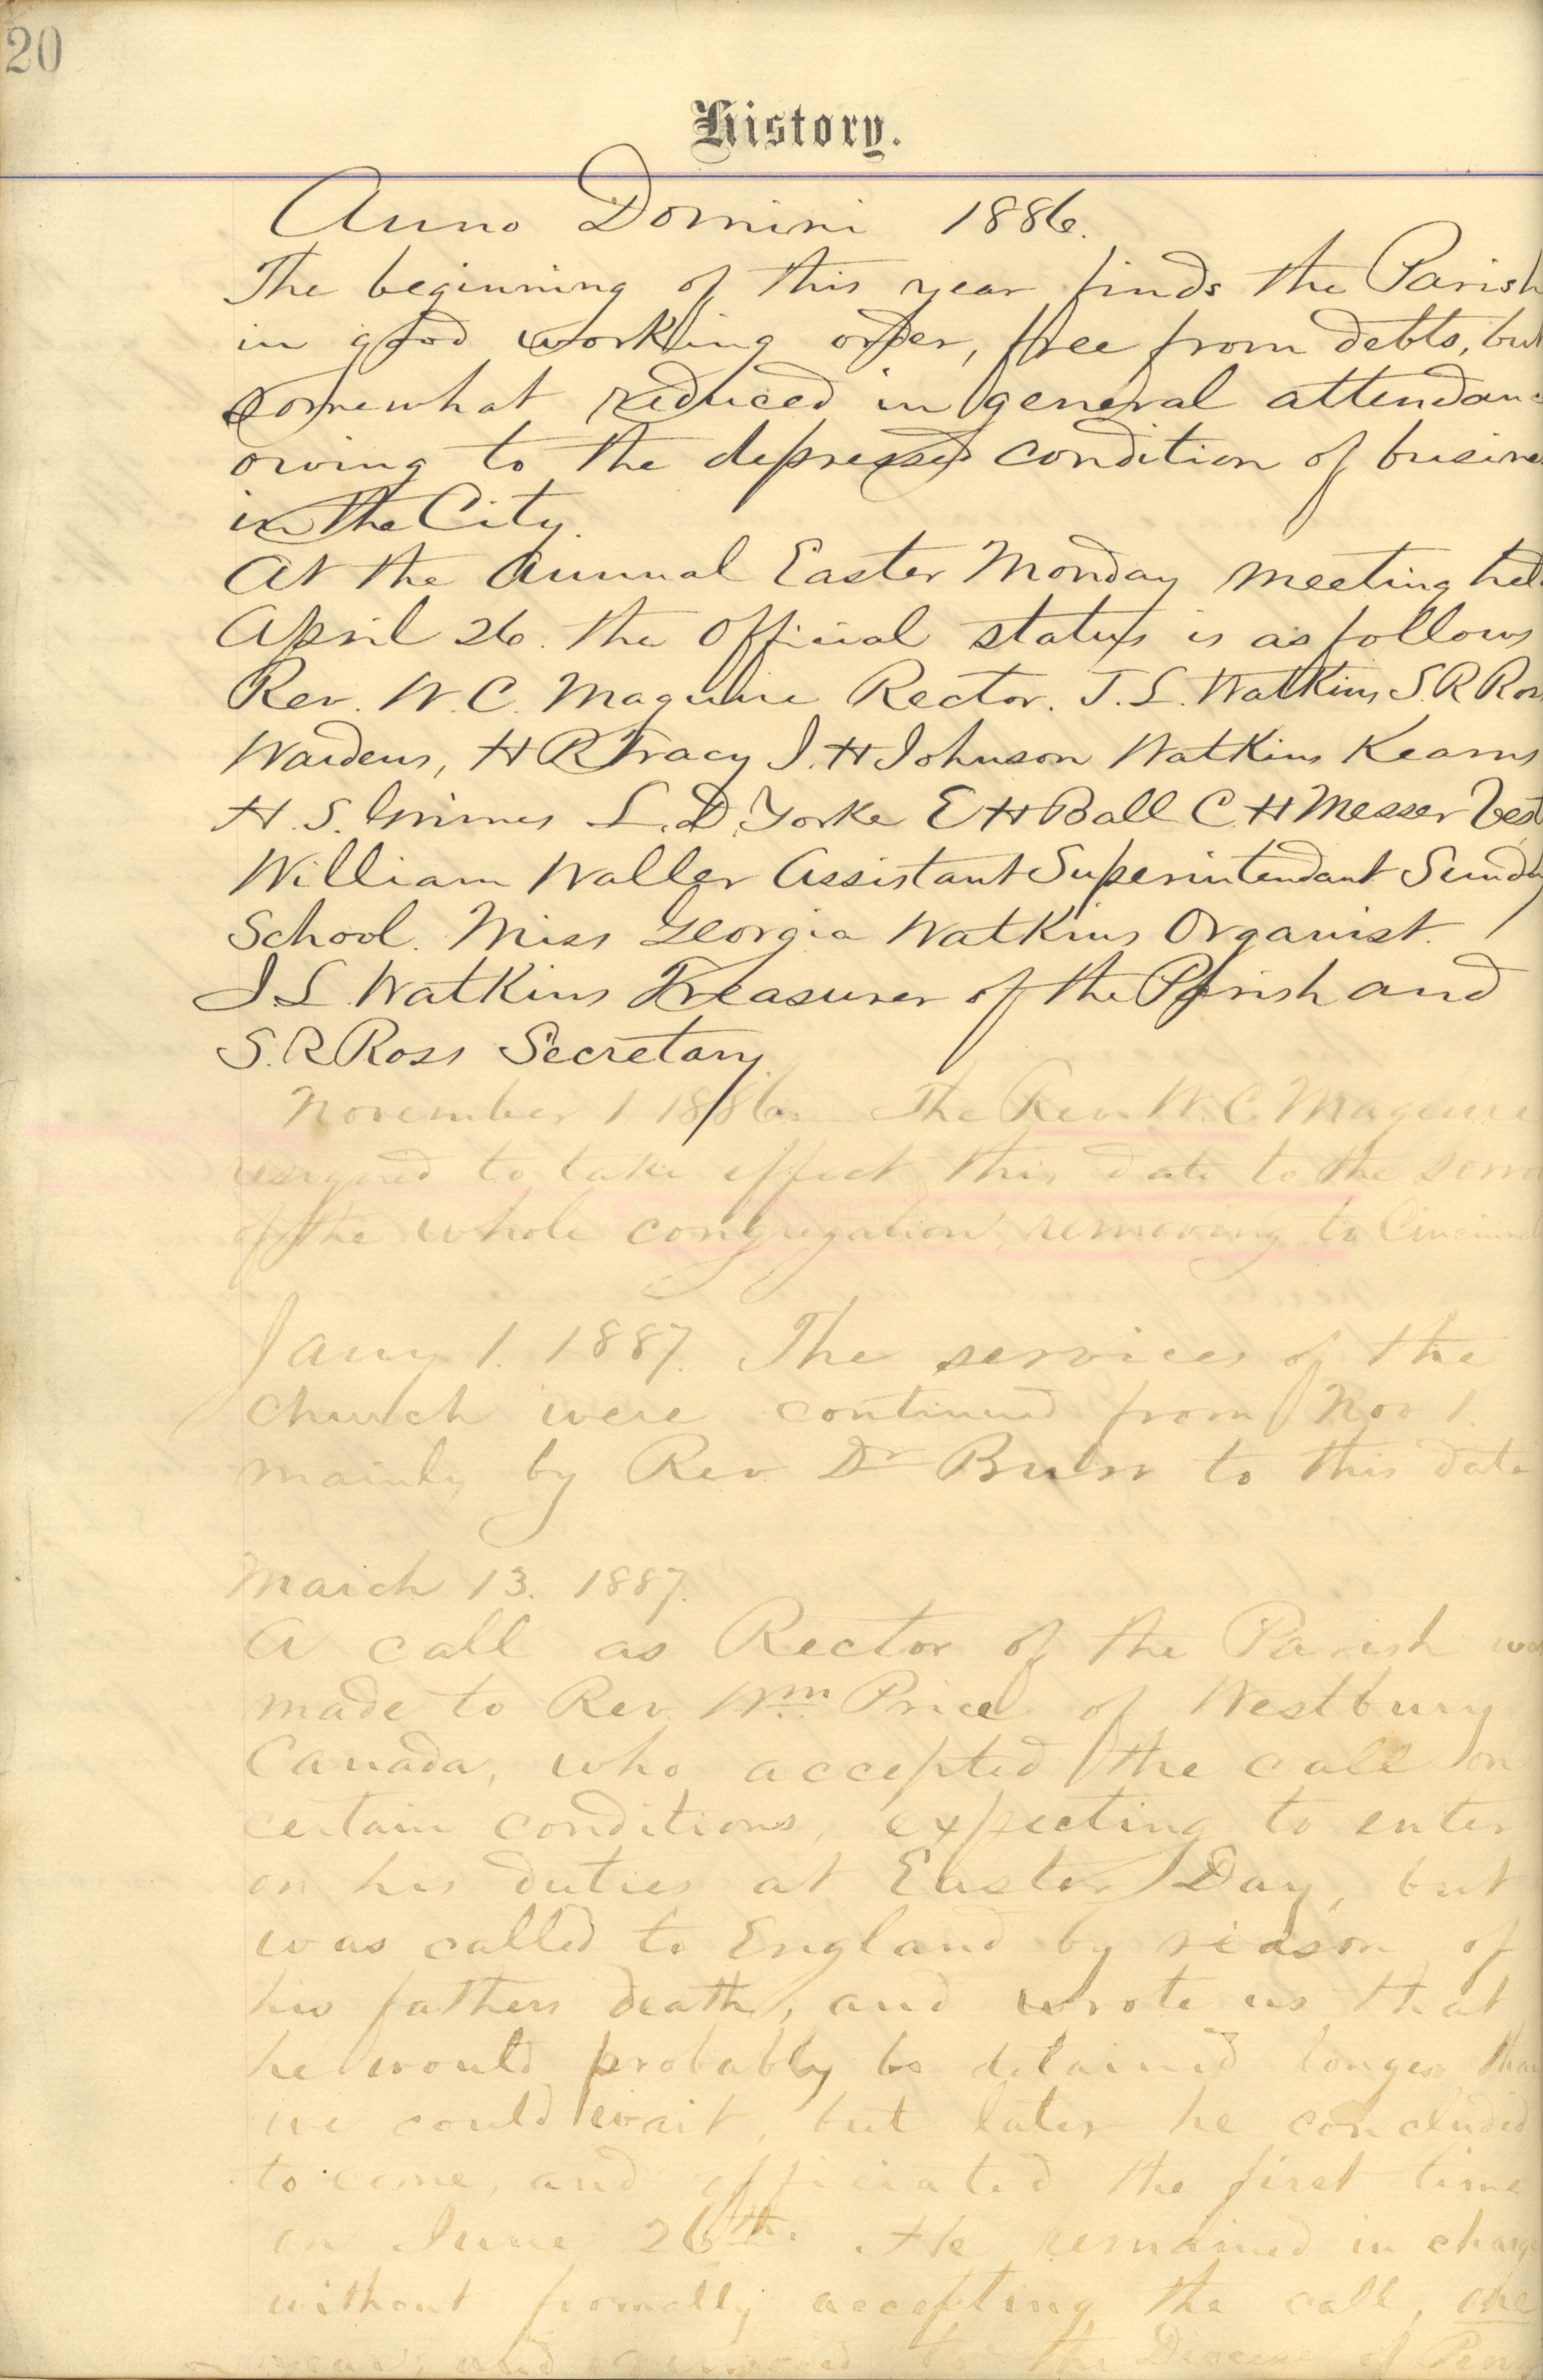 20
History.
Anno Domini 1886.
The beginning of this year finds the Parish
in good working order, free from debts, but
somewhat reduced in general attendanc
owing to the depressed condition of busines
in the City.
At the Annual Easter Monday meeting held
April 26. the Official status is as follows
Rev. W. C. Maguire Rector. J. L. Watkins S. R Ross
Wardens, H R Tracy J. H Johnson Watkins Kearns
H. S. Grimes L. D. Yorke E H Ball C. H Messer Vest
William Waller Assistant Superintendant Sunday
School. Miss Georgia Watkins Organist.
J. L Watkins Treasurer of the Parish and
S. R Ross Secretary.
November 1 1886. The Rev. W. C. Maguire
resigned to take effect this date to the sorrow
of the whole congregation, removing to Cincinnati
Jany 1. 1887. The services of the
church were continued from Nov 1.
mainly by Rev. Dr Burr to this date
March 13. 1887.
A call as Rector of the Parish was
made to Rev. Wm Price of Westbury
Canada, who accepted the call on
certain conditions, expecting to enter
on his duties at Easter Day, but
was called to England by reason of
his fathers death, and wrote us that
he would probably be detained longer than
we could wait, but later he concluded
to come, and officiated the first time
on June 26th. He remained in charge
without formally accepting the call, one
year, and removed to the Diocese of